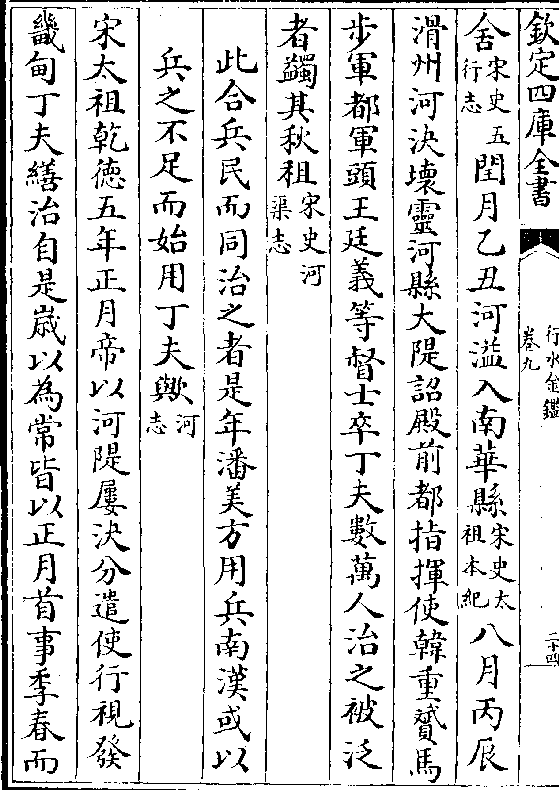 欽定四庫全書
行水金鑑
卷九
二十四
舍宋史五行志閏月乙丑河溢入南華縣宋史太祖本紀八月丙辰
滑州河決壞靈河縣大隄詔殿前都指揮使韓重贇馬
步軍都軍頭王廷義等督士卒丁夫數萬人治之被泛
者蠲其秋租宋史河渠志
此合兵民而同治之者是年潘美方用兵南漢或以
兵之不足而始用丁夫歟河志
宋太祖乾德五年正月帝以河隄屢決分遣使行視發
畿甸丁夫繕治自是歲以為常皆以正月首事季春而